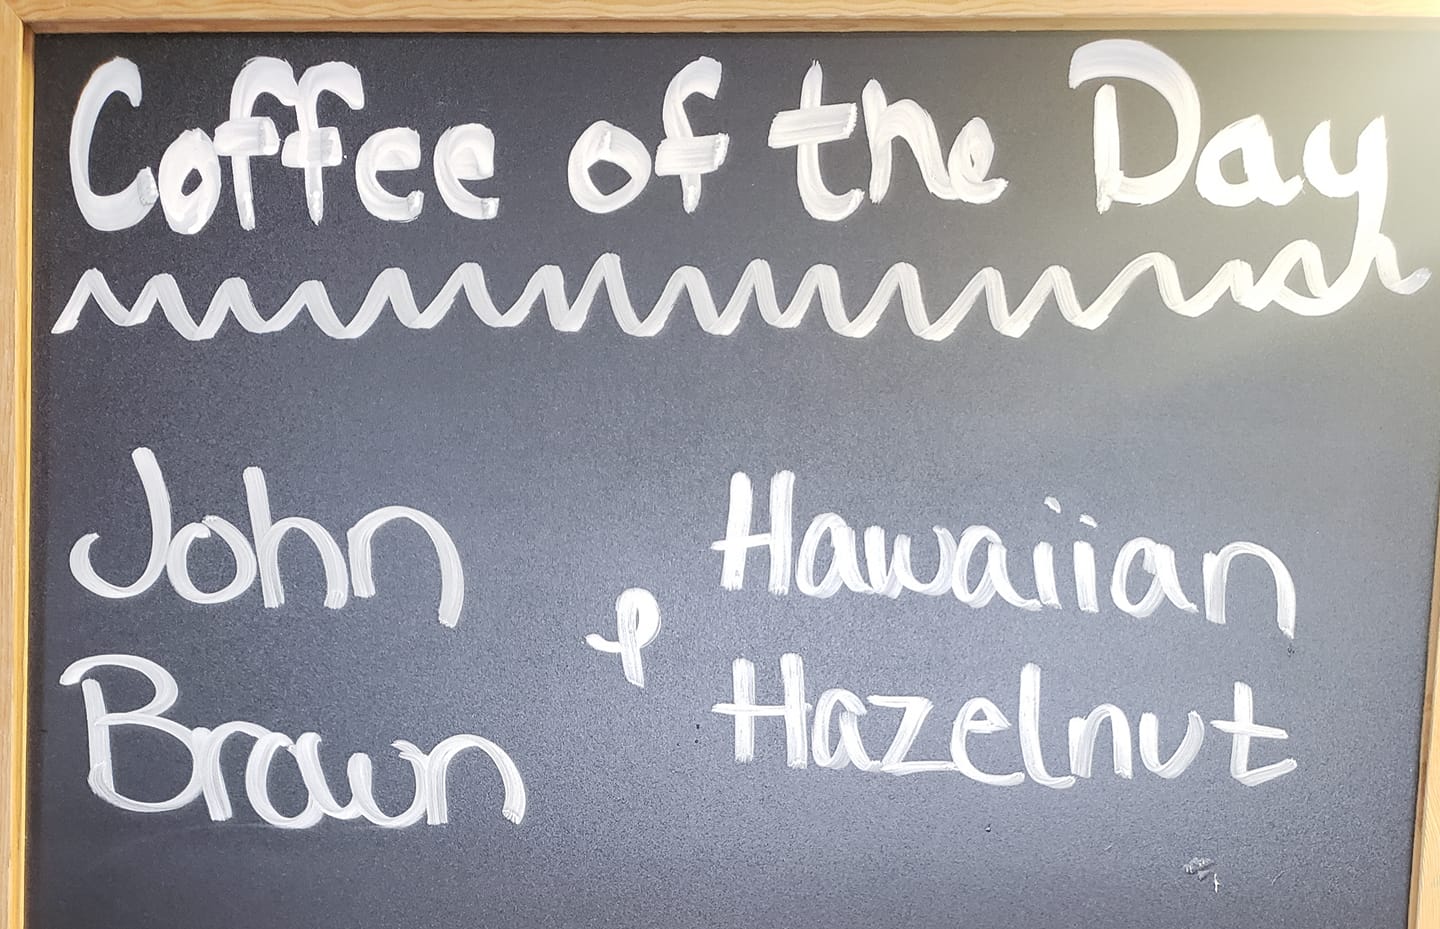 Coffee of the Day
John
Brawn
&
Hawaiian
Hazelnut